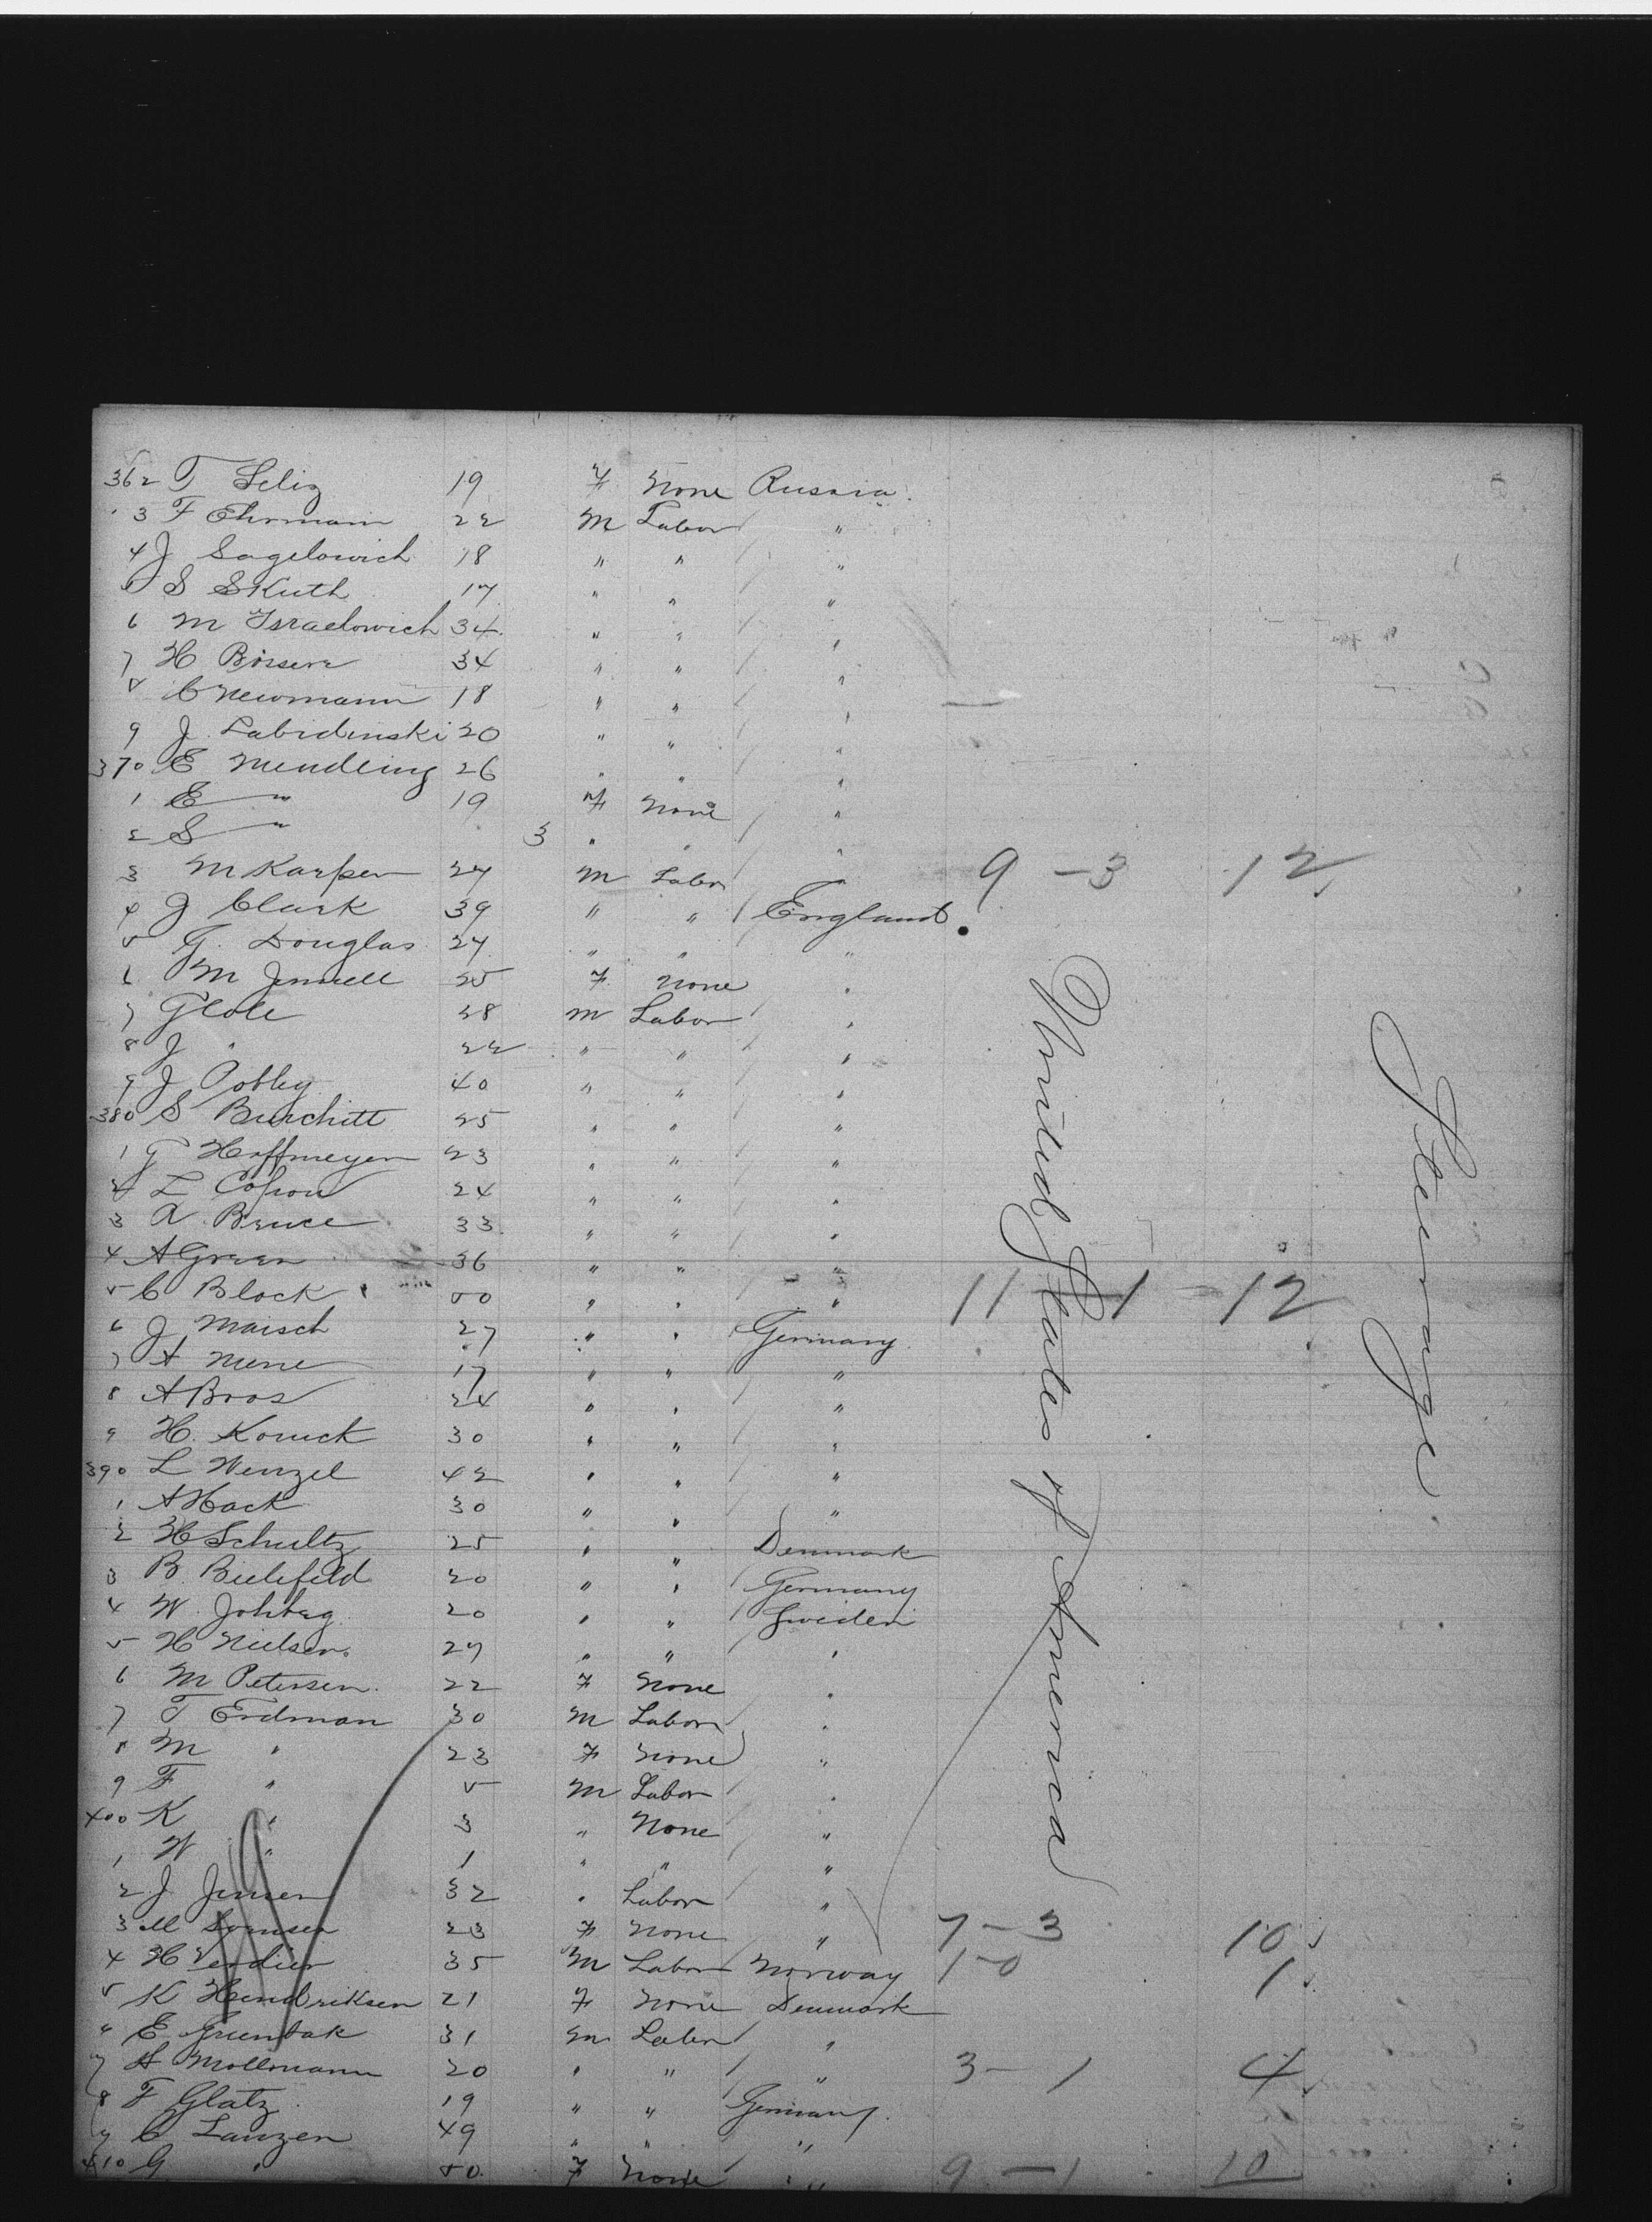 362 T Seliz 19 F None Russia
3 F Ehrmann 22 M Labor "
4 J Sagelowich 18 " " "
5 S Skuth 17 " " "
6 M Israelowich 34 " " "
7 H 34 " " "
8 C Newmann 18 " " "
9 J Labidinski 20 " " "
370 E Mendling 26 " " "
1 E " 19 F None "
2 S " 3 " " "
3 M Karpen 27 M Labor " 9 - 3 12
4 J Clark 39 " " England
5 G. Douglas 27 " " "
6 M 25 F None "
7 G Cole 28 M Labor "
8 J " 22 " " "
9 J 40 " " "
380 S Burchitt 25 " " "
1 G Hoffmeyer 23 " " "
2 L 24 " " "
3 A. Bruce 33 " " "
4 A Green 36 " " "
5 C Block 50 " " " 11 - 1 - 12
6 J Maisch 27 " " Germany
7 A 17 " " "
8 A Bros 24 " " "
9 H. 30 " " "
390 L Wenzel 42 " " "
1 A Hack 30 " " "
2 H Schultz 25 " " Denmark
3 B. Bielefeld 20 " " Germany
4 W. 20 " " Sweden
5 H Nielsen 27 " " "
6 M Petersen 22 F None "
7 T Erdman 30 M Labor "
8 M " 23 F None "
9 F " 5 M Labor "
400 K " 3 " None "
1 W " 1 " " "
2 J Jensen 32 " Labor "
3 M 23 F None " 7 - 3 10
4 H Verdier 35 M Labor Norway 1 - 0 1
5 K Hendriksen 21 F None Denmark
6 E 31 M Labor "
7 A Mollmann 20 " " " 3 - 1 4
8 F Glatz 19 " " Germany
9 C Lanzen 49 " " "
410 G " 50 F None " 9 - 1 10
United States of America
Steerage